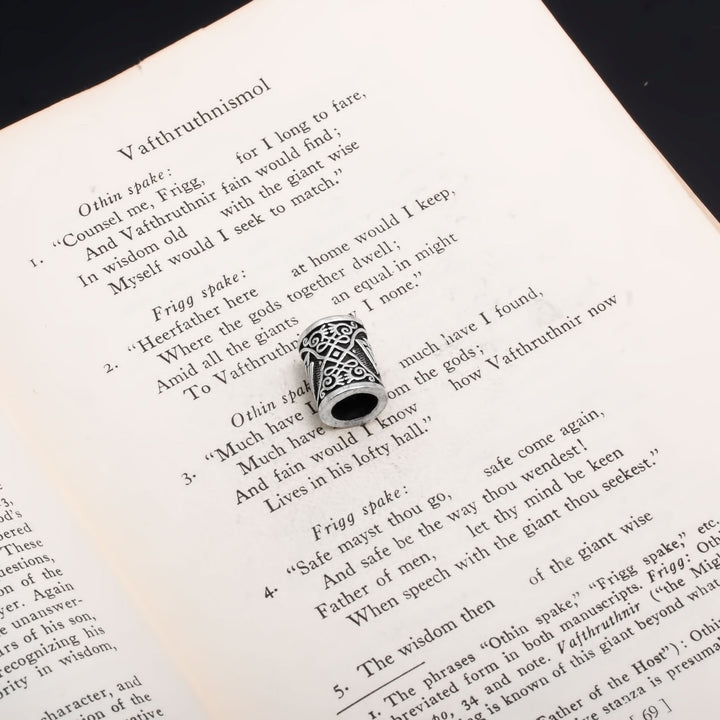 3,
od's
bered
These
uestions,
on of the
yer. Again
e unanswer-
irs of his son,
recognizing his
ority in wisdom,
character, and
ion of the
ative
Vafthruthnismol
Othin spake:
1. "Counsel me, Frigg, for I long to fare,
And Vafthruthnir fain would find;
In wisdom old with the giant wise
Myself would I seek to match."
Frigg spake:
2. "Heerfather here at home would I keep,
Where the gods together dwell;
Amid all the giants an equal in might
To Vafthruthn I none."
Othin spak
3. "Much have I much have I found,
Much have om the gods;
And fain would I know how Vafthruthnir now
Lives in his lofty hall."
Frigg spake:
4. "Safe mayst thou go, safe come again,
And safe be the way thou wendest!
Father of men, let thy mind be keen
When speech with the giant thou seekest."
5. The wisdom then of the giant wise
1. The phrases "Othin spake," "Frigg spake," etc.
breviated form in both manuscripts. Frigg: Othi
po, 34 and note. Vafthruthnir ("the Migh
is known of this giant beyond what
ather of the Host"): Othi
ve stanza is presuma
69 ]